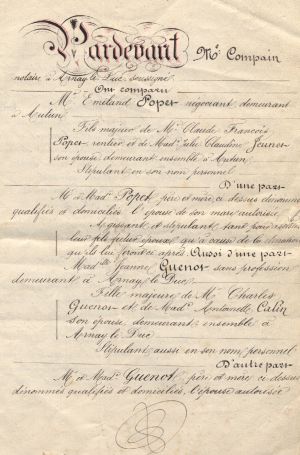 Pardevant Me Compain
notaire à Arnay le Duc soussigné
Ont comparu
Mr Emiland Popet négociant demeurant
à Autun
Fils majeur de Mr Claude François
Popet, rentier et de Made Julie Claudine Jeunet
son épouse demeurant ensemble à Autun
Stipulant en son nom personnel
D'une part
Mr et Made Popet père et mère ci dessus dénommés
qualifiés et domiciliés, l'épouse de son mari autorisée
Agissant et stipulant tant pour assister
leur fils futur époux qu'à cause de la donation
qu'ils lui feront ci après Aussi d'une part
Madlle Jeanne Guenot sans profession
demeurant à Arnay le Duc
Fille majeure de Mr Charles
Guenot et de Made Antoinette Calin
son épouse demeurant ensemble à
Arnay le Duc
Stipulant aussi en son nom personnel
D'autre part
Mr et Made Guenot, père et mère ci dessus
dénommés qualifiés et domiciliés, l'épouse autorisée